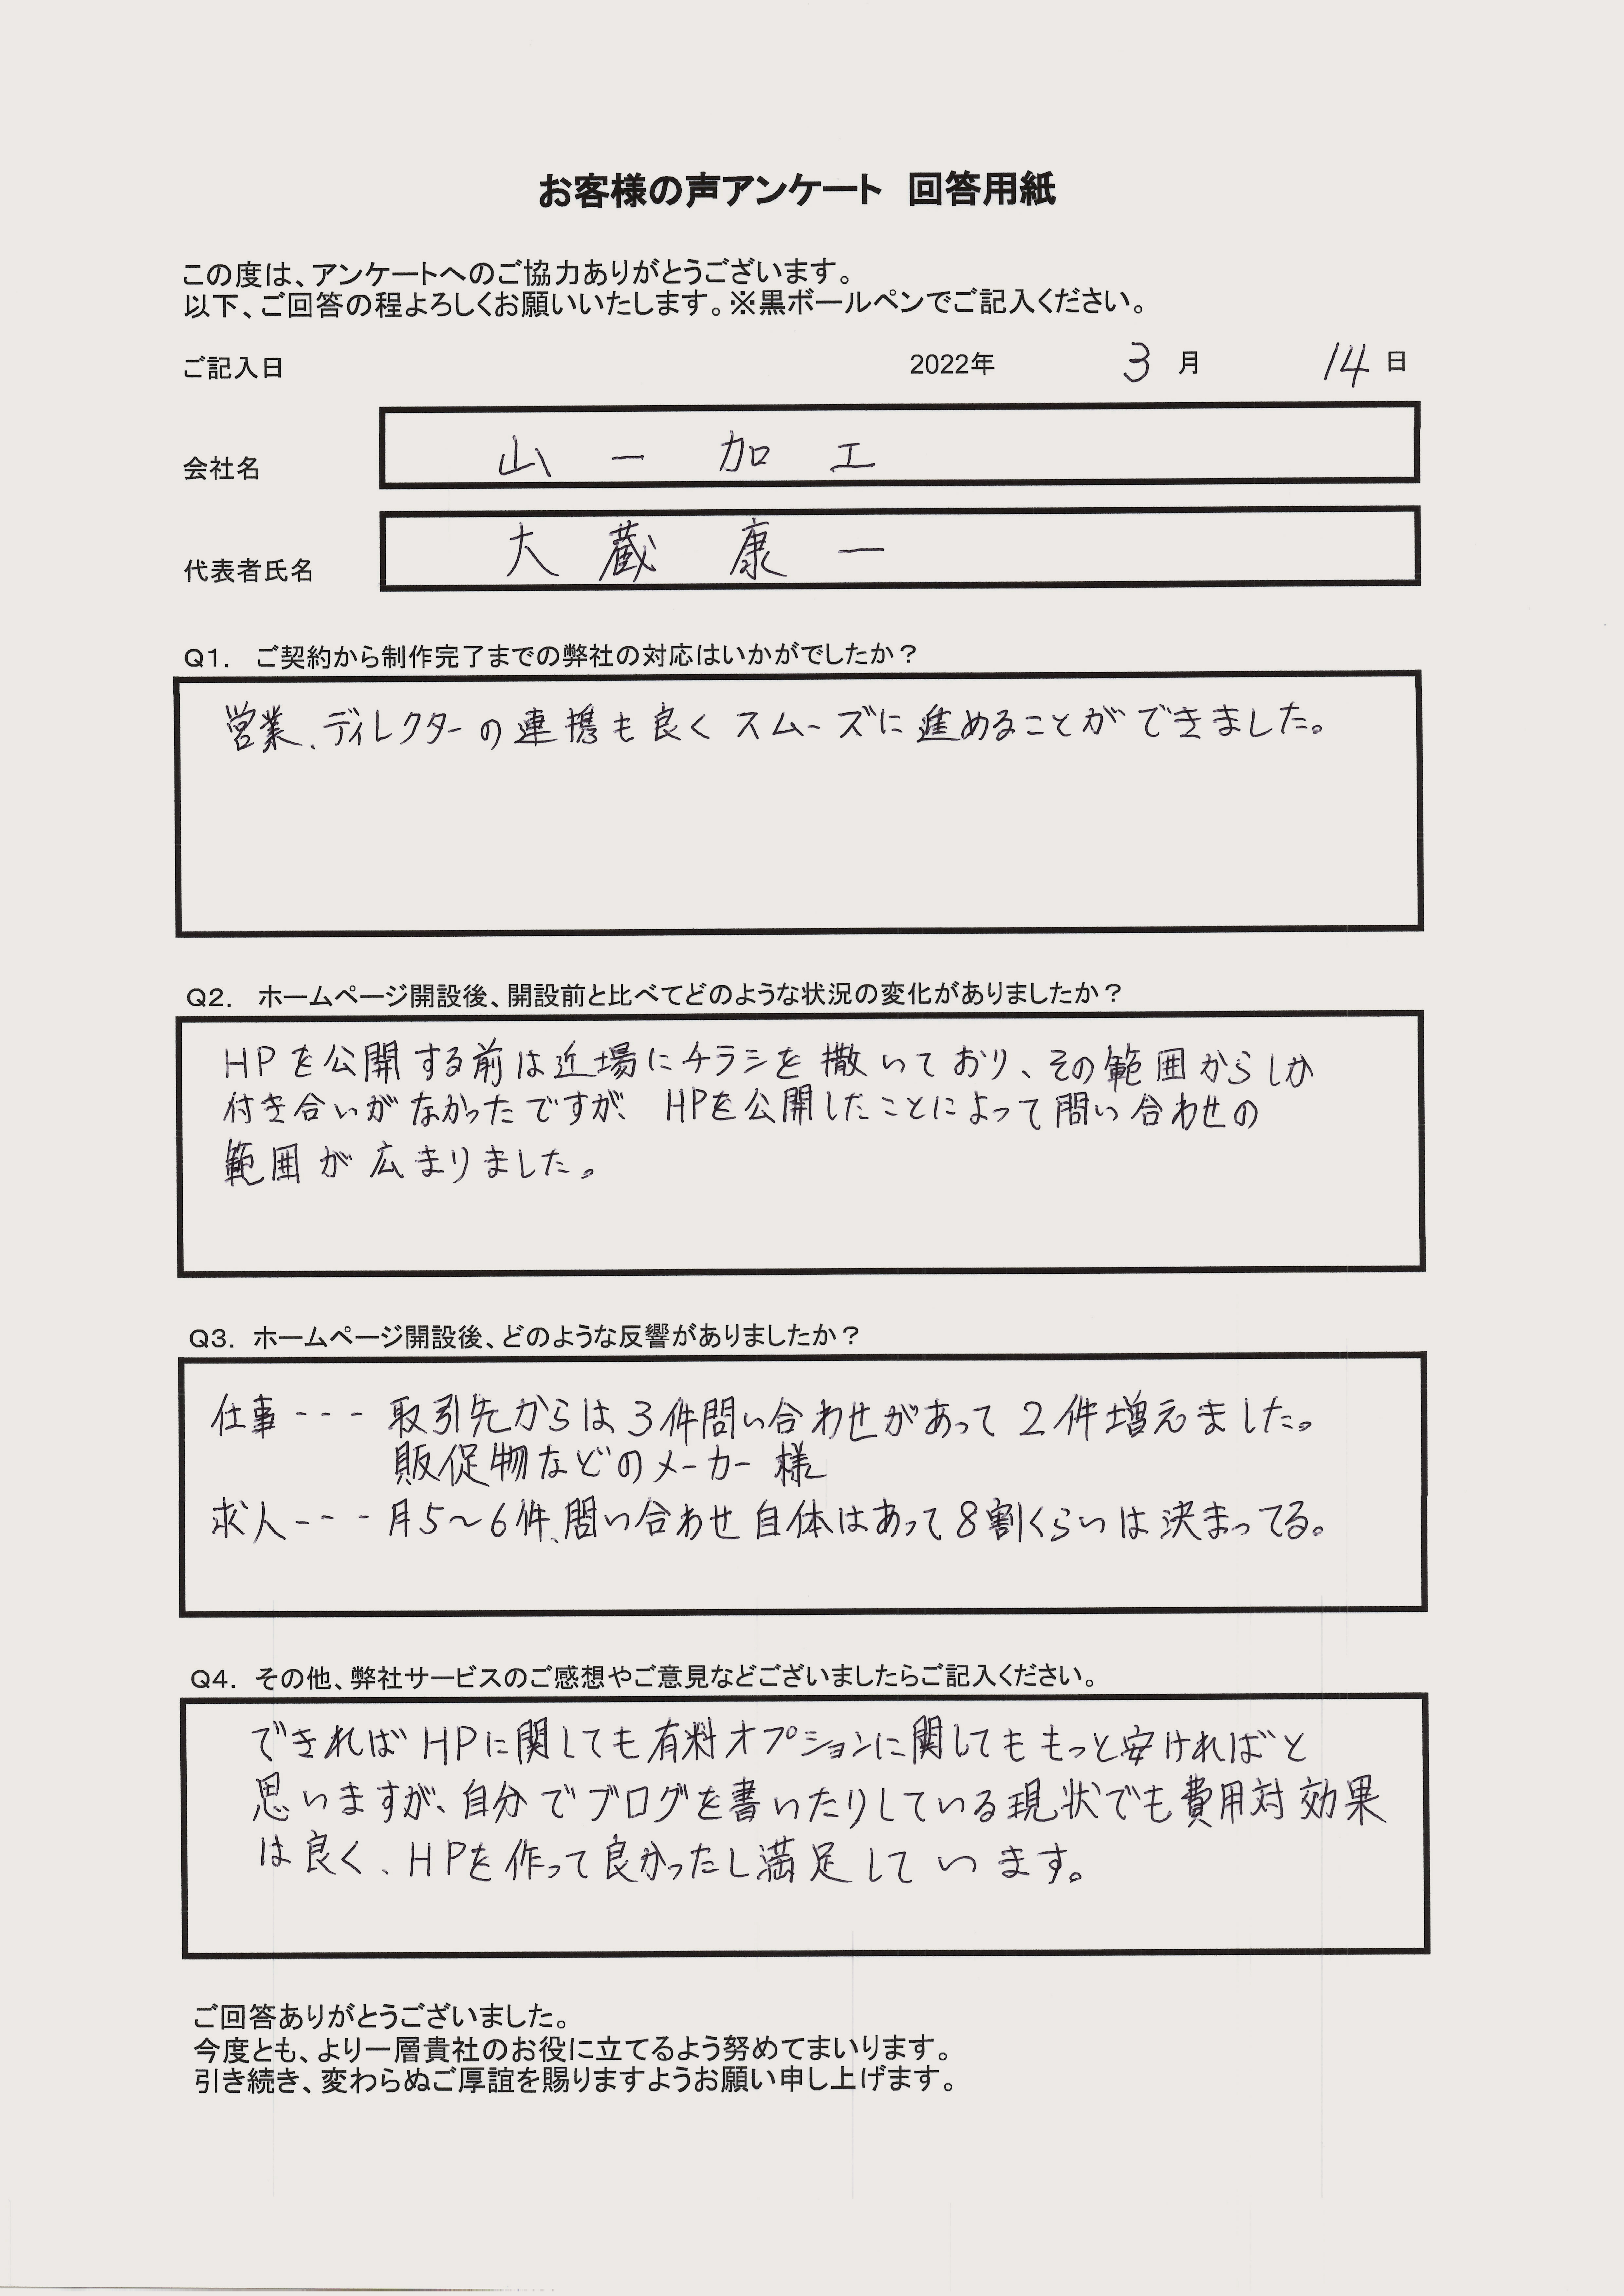 お客様の声アンケート 回答用紙
この度は、アンケートへのご協力ありがとうございます。
以下、ご回答の程よろしくお願いいたします。※黒ボールペンでご記入ください。
ご記入日 2022年 3 月 14 日
会社名 山一加工
代表者氏名 大蔵康一
Q1. ご契約から制作完了までの弊社の対応はいかがでしたか？
営業、ディレクターの連携も良くスムーズに進めることができました。
Q2. ホームページ開設後、開設前と比べてどのような状況の変化がありましたか？
HPを公開する前は近場にチラシを撒いており、その範囲からしか
付き合いがなかったですが、HPを公開したことによって問い合わせの
範囲が広まりました。
Q3. ホームページ開設後、どのような反響がありましたか？
仕事--- 取引先からは3件問い合わせがあって2件増えました。
販促物などのメーカー様
求人--- 月5〜6件、問い合わせ自体はあって8割くらいは決まってる。
Q4. その他、弊社サービスのご感想やご意見などございましたらご記入ください。
できればHPに関しても有料オプションに関してももっと安ければと
思いますが、自分でブログを書いたりしている現状でも費用対効果
は良く、HPを作って良かったし満足しています。
ご回答ありがとうございました。
今度とも、より一層貴社のお役に立てるよう努めてまいります。
引き続き、変わらぬご厚誼を賜りますようお願い申し上げます。